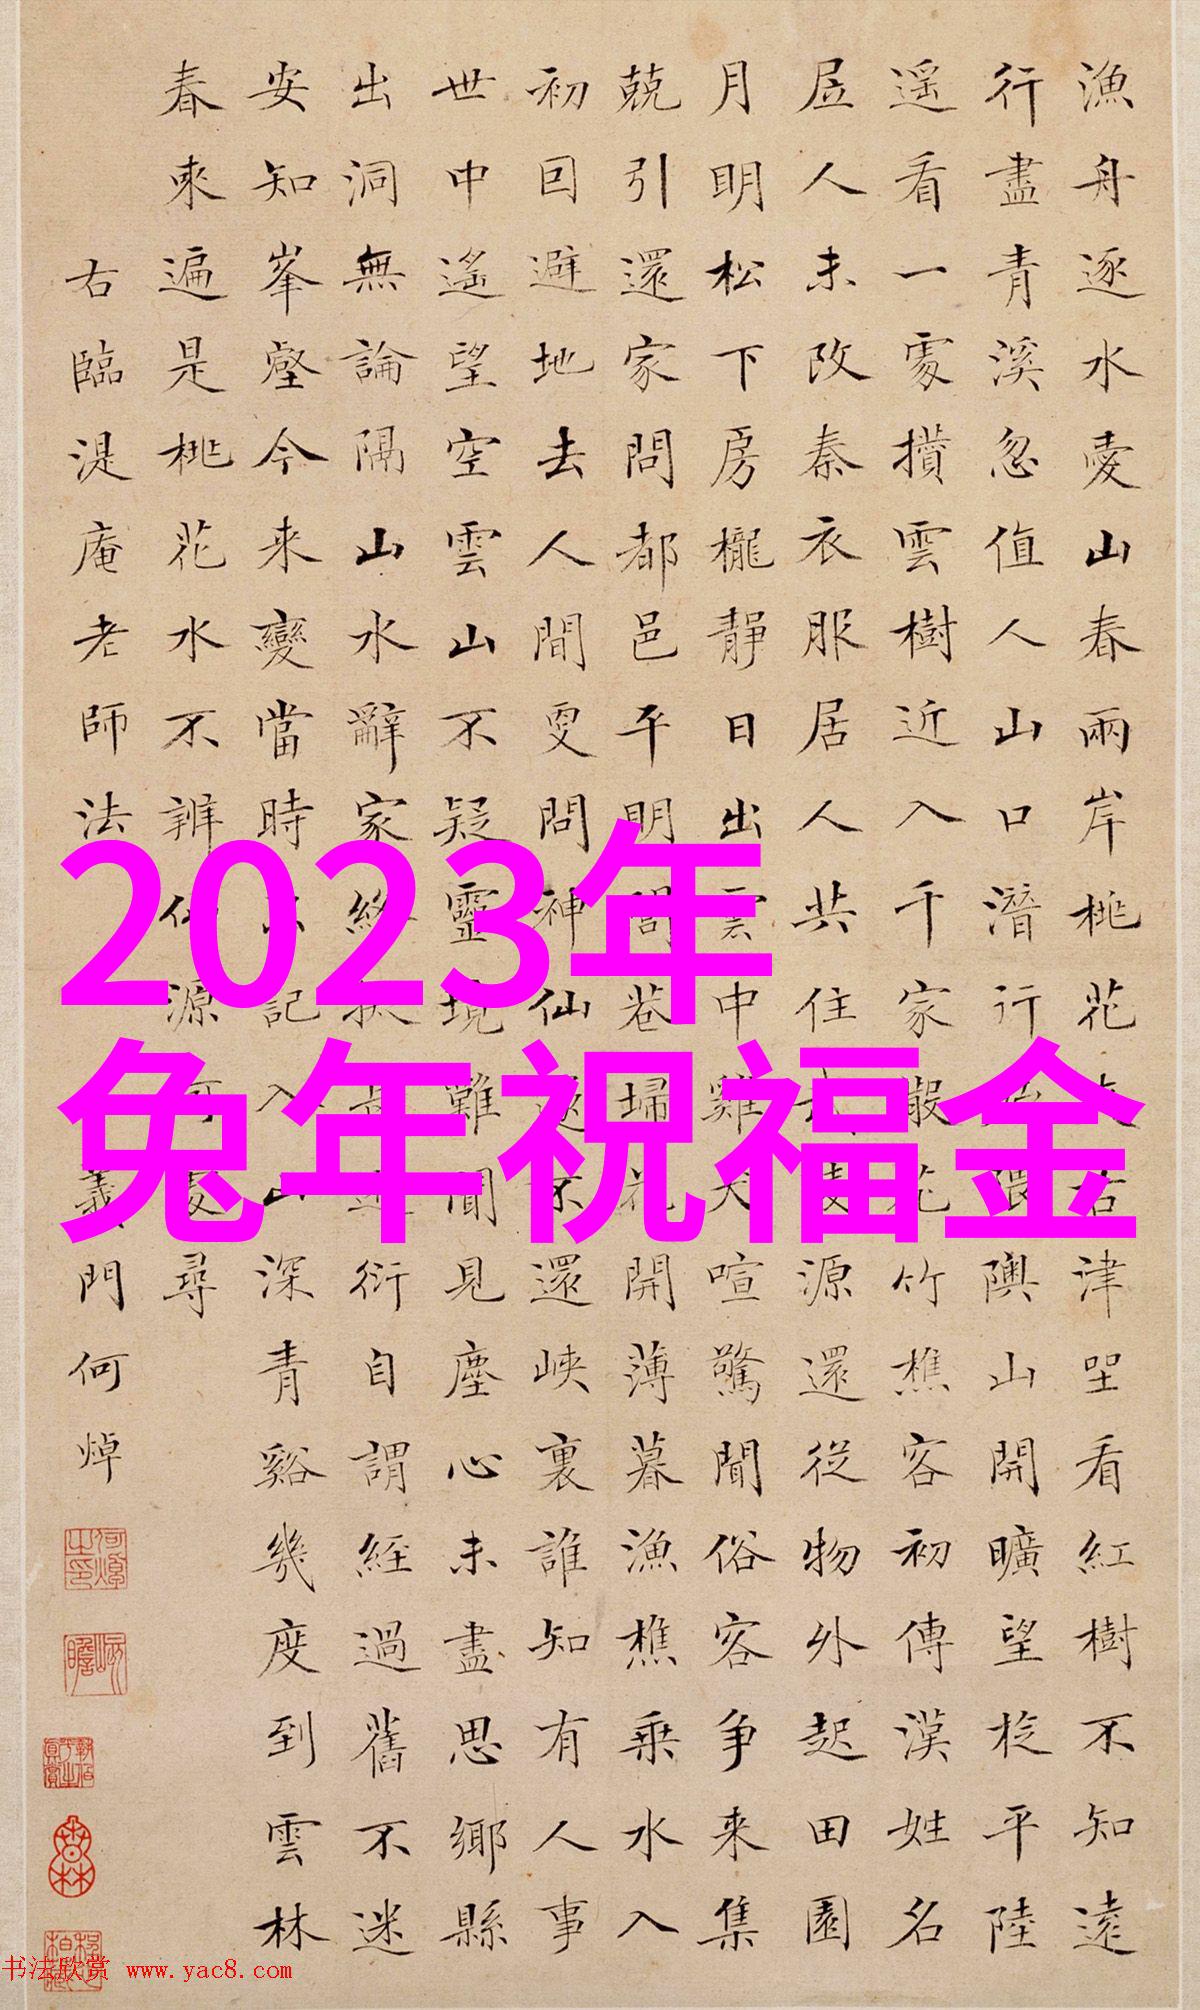 漁舟逐水愛山春兩岸桃花夾古津坐看紅樹不知遠
行盡青溪忽值人山口潛行始隈隩山開曠望旋平陸
遥看一處攢雲樹近入千家散花竹樵客初傳漢姓名
居人未改秦衣服居人共住武陵源還從物外起田園
月明松下房櫳靜日出雲中雞犬喧驚聞俗客爭来集
競引還家問都邑平明閭巷掃花開薄暮漁樵乘水入
初因避地去人間更問神仙遂不還峽裏誰知有人事
世中遙望空雲山不疑靈境難聞見塵心未盡思鄉縣
出洞無論隔山水辭家終擬長遊衍自謂經過舊不迷
安知峯壑今来變當時只記入山深青谿幾度到雲林
春來遍是桃花水不辨仙源何處尋
右臨湜庵老師法義門何焯
2023年
兔年祝福金
书法欣赏 www.yac8.com